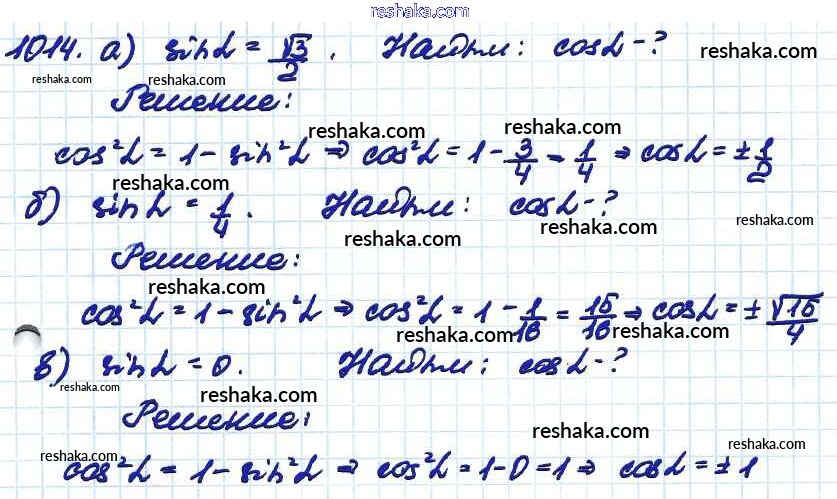 reshaka.com
1014. а) sin α = √3/2. Найти: cos α - ? reshaka.com
reshaka.com reshaka.com
Решение: reshaka.com
reshaka.com reshaka.com
cos²α = 1 - sin²α ⇒ cos²α = 1 - 3/4 = 1/4 ⇒ cos α = ± 1/2
reshaka.com reshaka.com reshaka.com
б) sin α = 1/4. Найти: cos α - ? reshaka.com
reshaka.com reshaka.com
Решение:
reshaka.com reshaka.com
cos²α = 1 - sin²α ⇒ cos²α = 1 - 1/16 = 15/16 ⇒ cos α = ± √15/4
reshaka.com reshaka.com
в) sin α = 0. Найти: cos α - ?
reshaka.com reshaka.com reshaka.com
Решение:
reshaka.com
reshaka.com reshaka.com
cos²α = 1 - sin²α ⇒ cos²α = 1 - 0 = 1 ⇒ cos α = ± 1
reshaka.com reshaka.com